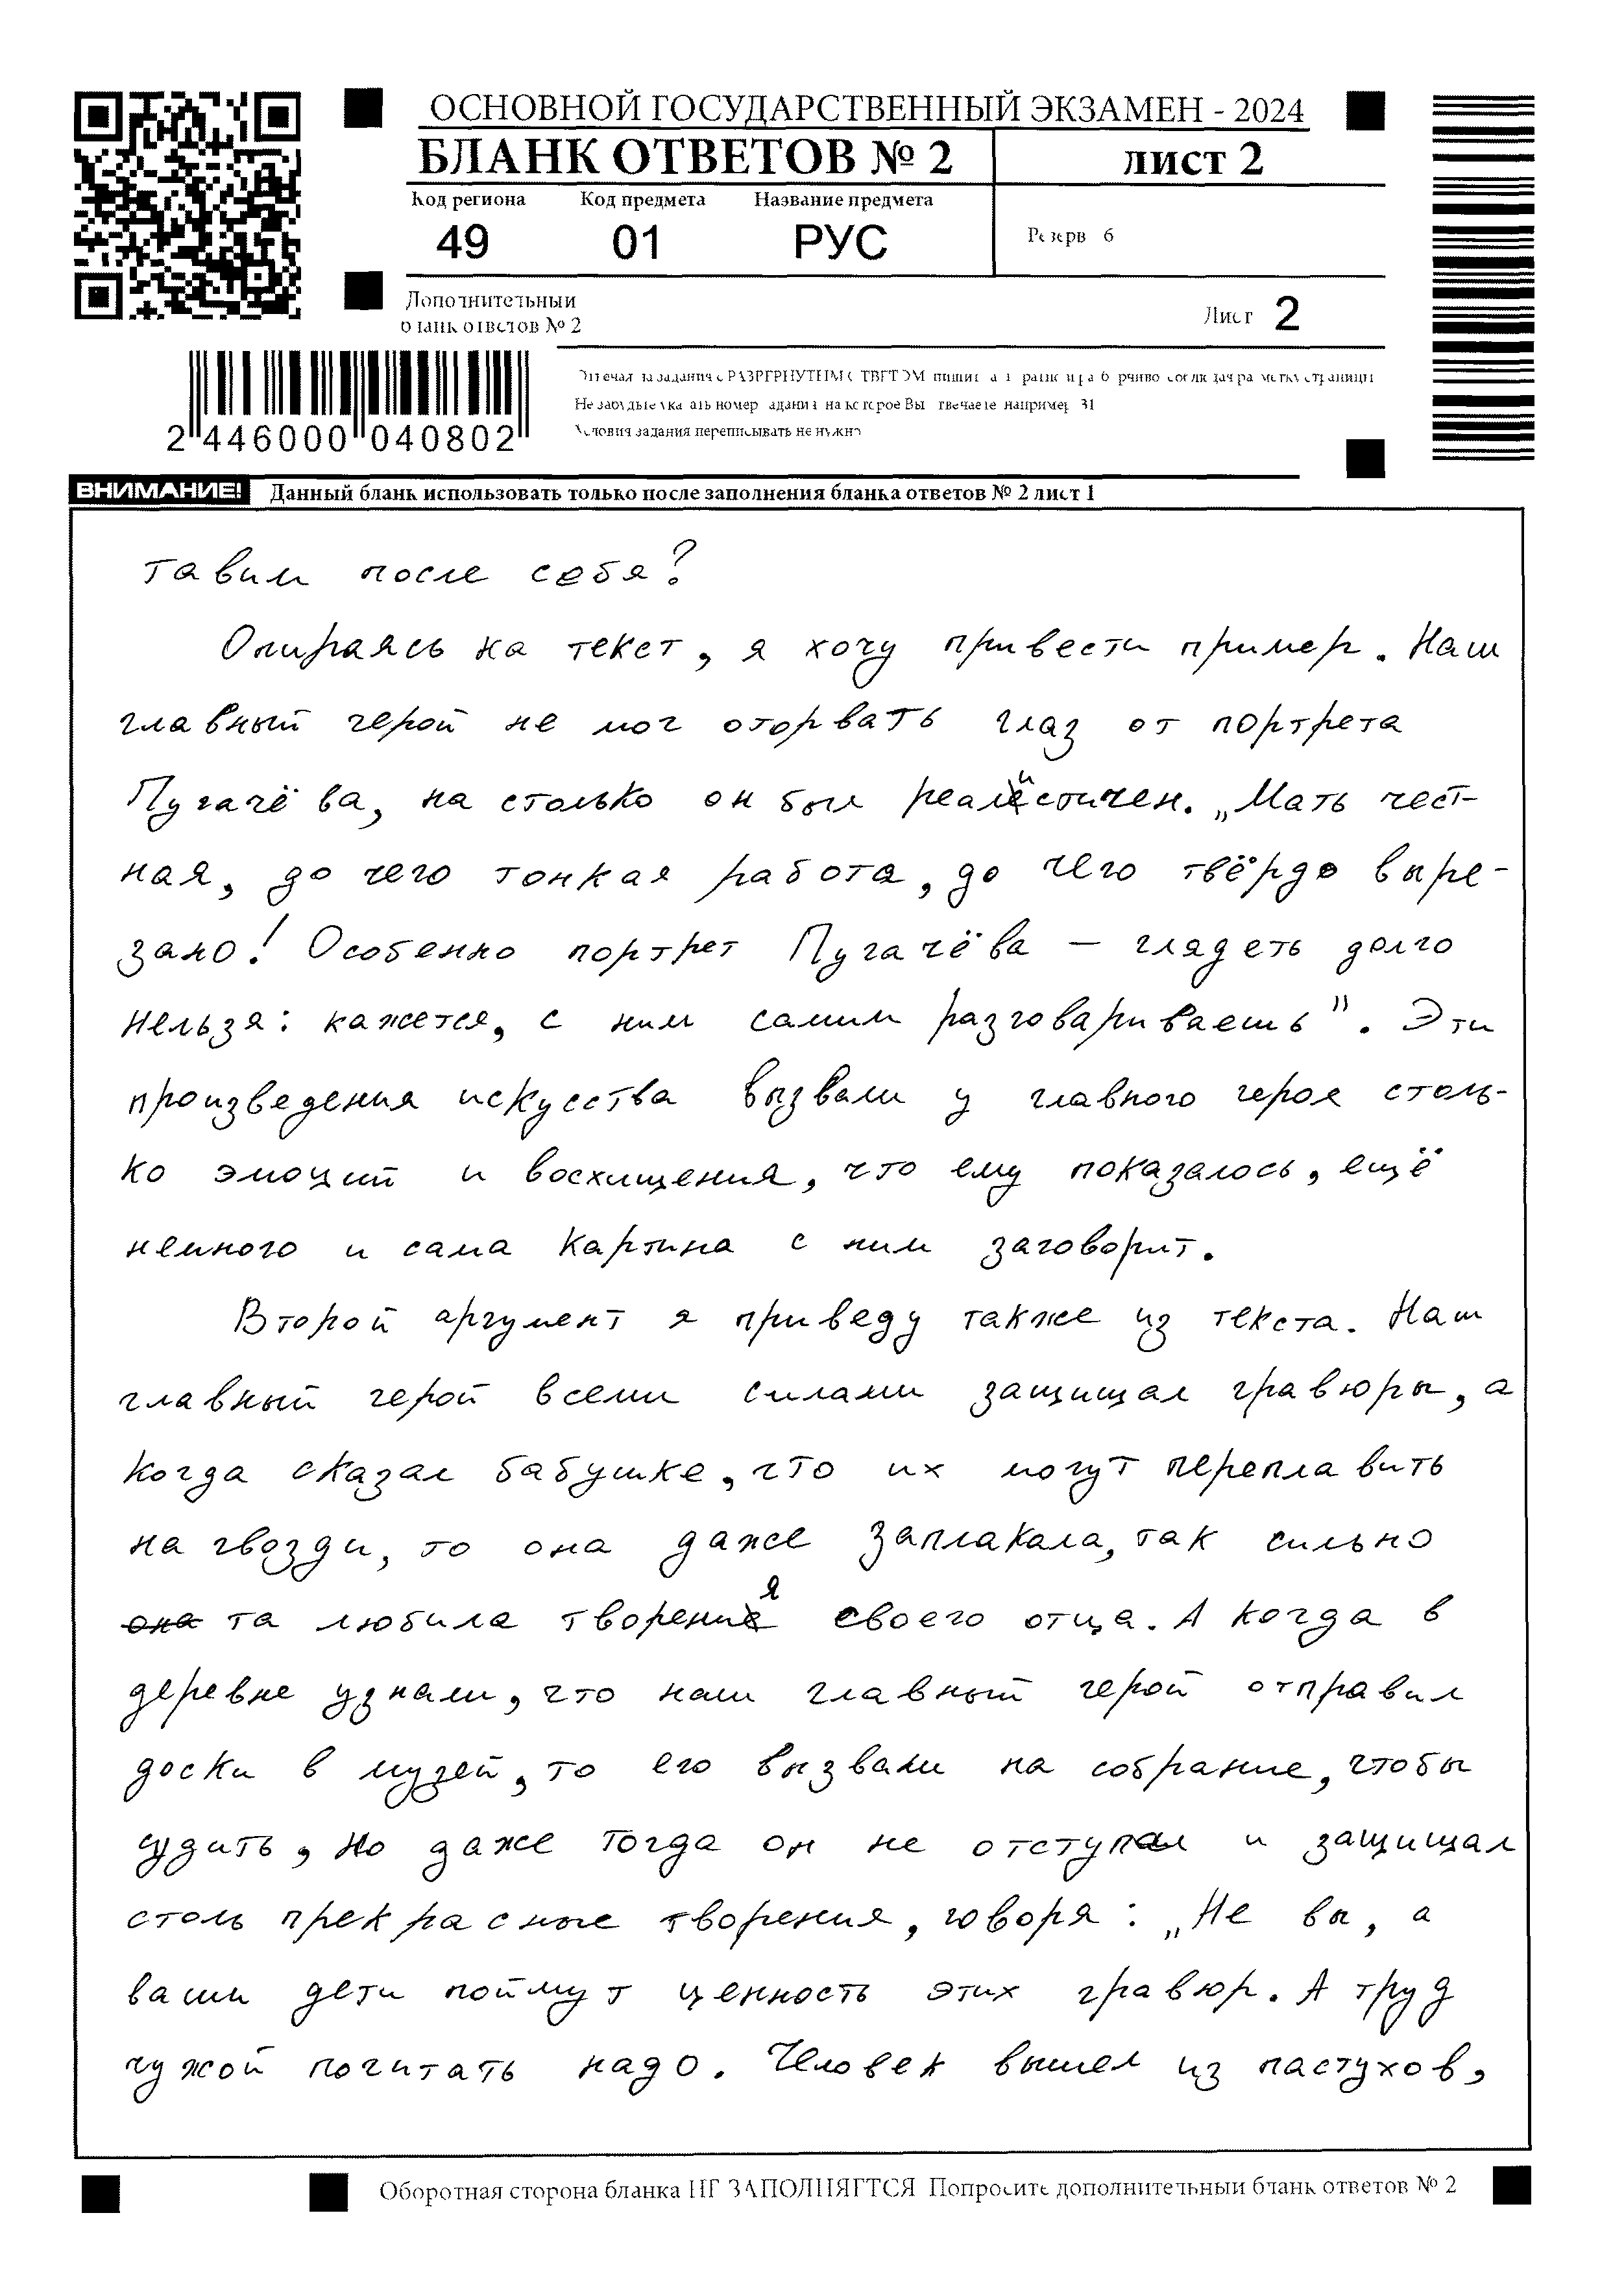 ОСНОВНОЙ ГОСУДАРСТВЕННЫЙ ЭКЗАМЕН - 2024
БЛАНК ОТВЕТОВ № 2 лист 2
Код региона Код предмета Название предмета
49 01 РУС
Резерв 6
Дополнительный
бланк ответов № 2
Лист 2
Не забудьте указать номер задания, на которое Вы отвечаете, например 31
Условия задания переписывать не нужно
2 446000 040802
ВНИМАНИЕ! Данный бланк использовать только после заполнения бланка ответов № 2 лист 1
тавим после себя?
Опираясь на текст, я хочу привести пример. Наш
главный герой не мог оторвать глаз от портрета
Пугачёва, на столько он был реалистичен. „Мать чест-
ная, до чего тонкая работа, до чего твёрдо выре-
зано! Особенно портрет Пугачёва — глядеть долго
нельзя: кажется, с ним самим разговариваешь". Эти
произведения искусства вызвали у главного героя столь-
ко эмоций и восхищения, что ему показалось, ещё
немного и сама картина с ним заговорит.
Второй аргумент я приведу также из текста. Наш
главный герой всеми силами защищал гравюры, а
когда сказал бабушке, что их могут переплавить
на гвозди, то она даже заплакала, так сильно
она та любила творения своего отца. А когда в
деревне узнали, что наш главный герой отправил
доски в музей, то его вызвали на собрание, чтобы
судить, но даже тогда он не отступал и защищал
столь прекрасные творения, говоря: „Не вы, а
ваши дети поймут ценность этих гравюр. А труд
чужой почитать надо. Человек вышел из пастухов,
Оборотная сторона бланка НЕ ЗАПОЛНЯЕТСЯ Попросите дополнительный бланк ответов № 2